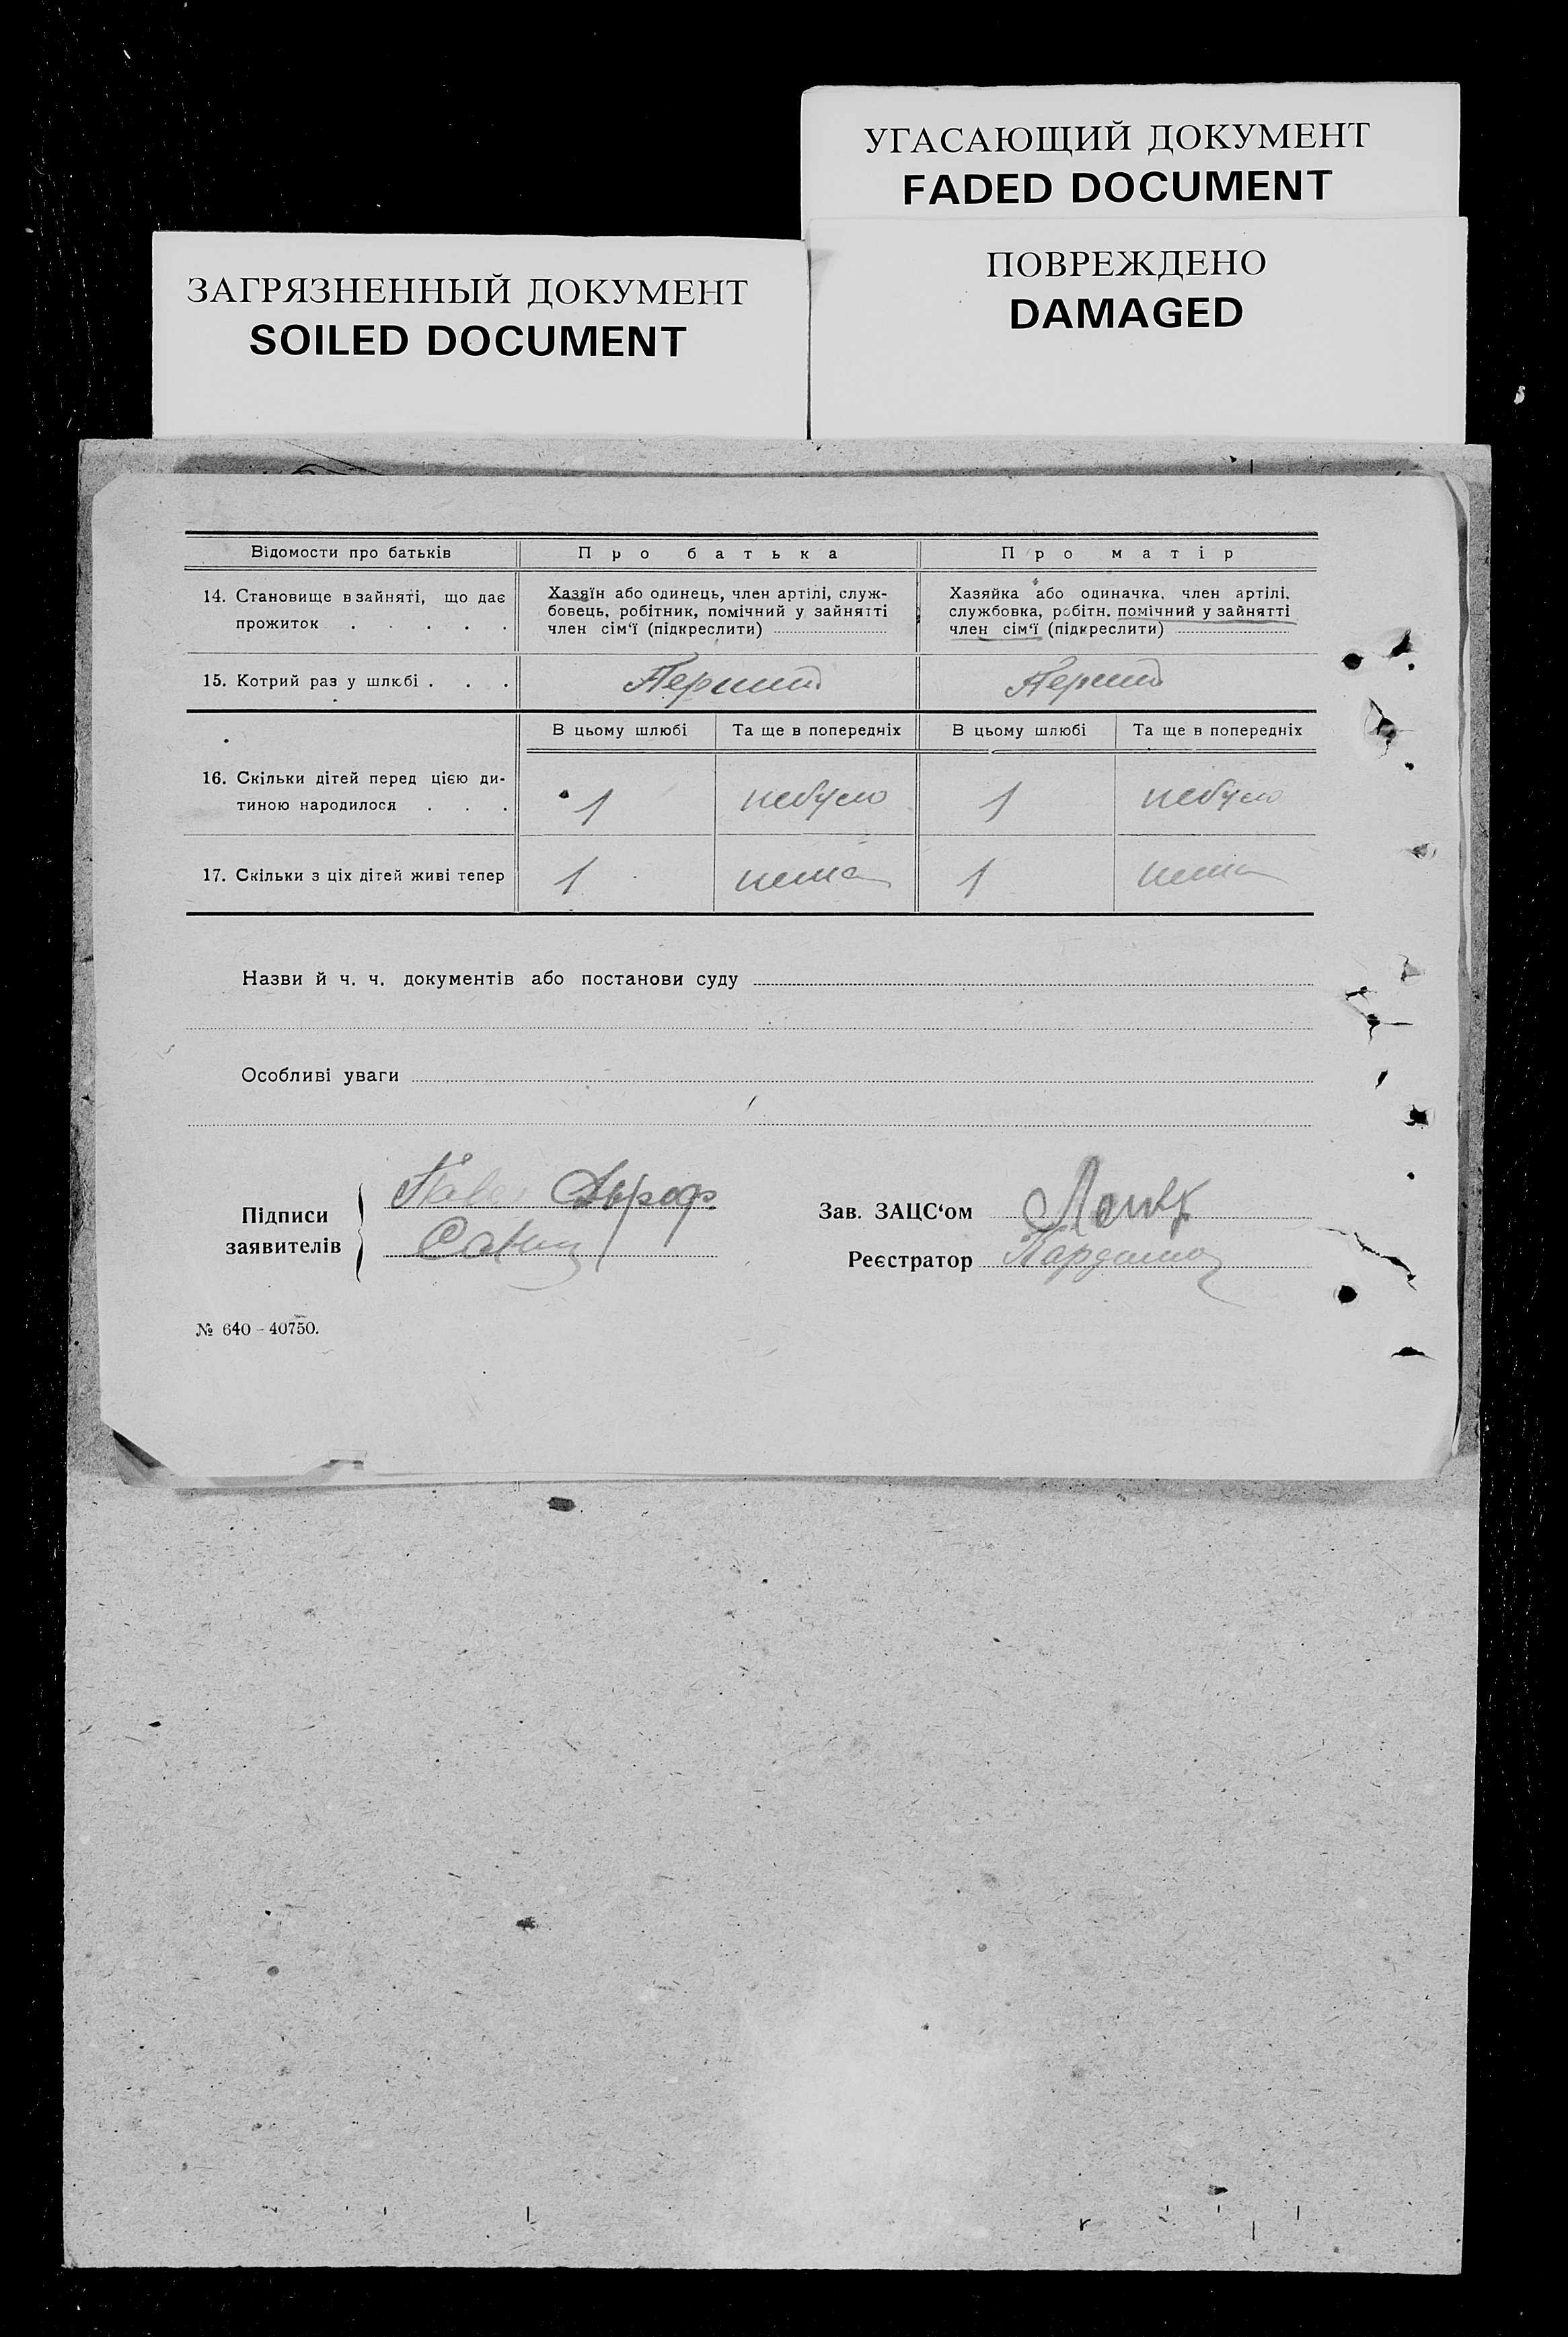 УГАСАЮЩИЙ ДОКУМЕНТ
FADED DOCUMENT
ЗАГРЯЗНЕННЫЙ ДОКУМЕНТ
SOILED DOCUMENT
ПОВРЕЖДЕНО
DAMAGED
Відомости про батьків
Про батька
Про матір
14. Становище в зайняті, що дає
прожиток . . . . .
Хазяїн або одинець, член артілі, служ-
бовець, робітник, помічний у зайнятті
член сім'ї (підкреслити)
Хазяйка або одиначка, член артілі,
службовка, робітн. помічний у зайнятті
член сім'ї (підкреслити)
15. Котрий раз у шлюбі . . .
Перший
Перший
В цьому шлюбі
Та ще в попередніх
В цьому шлюбі
Та ще в попередніх
16. Скільки дітей перед цією ди-
тиною народилося . . .
1
небуло
1
небуло
17. Скільки з ціх дітей живі тепер
1
нема
1
нема
Назви й ч. ч. документів або постанови суду
Особливі уваги
Підписи
заявителів
Зав. ЗАЦС'ом
Реєстратор
№ 640 – 40750.